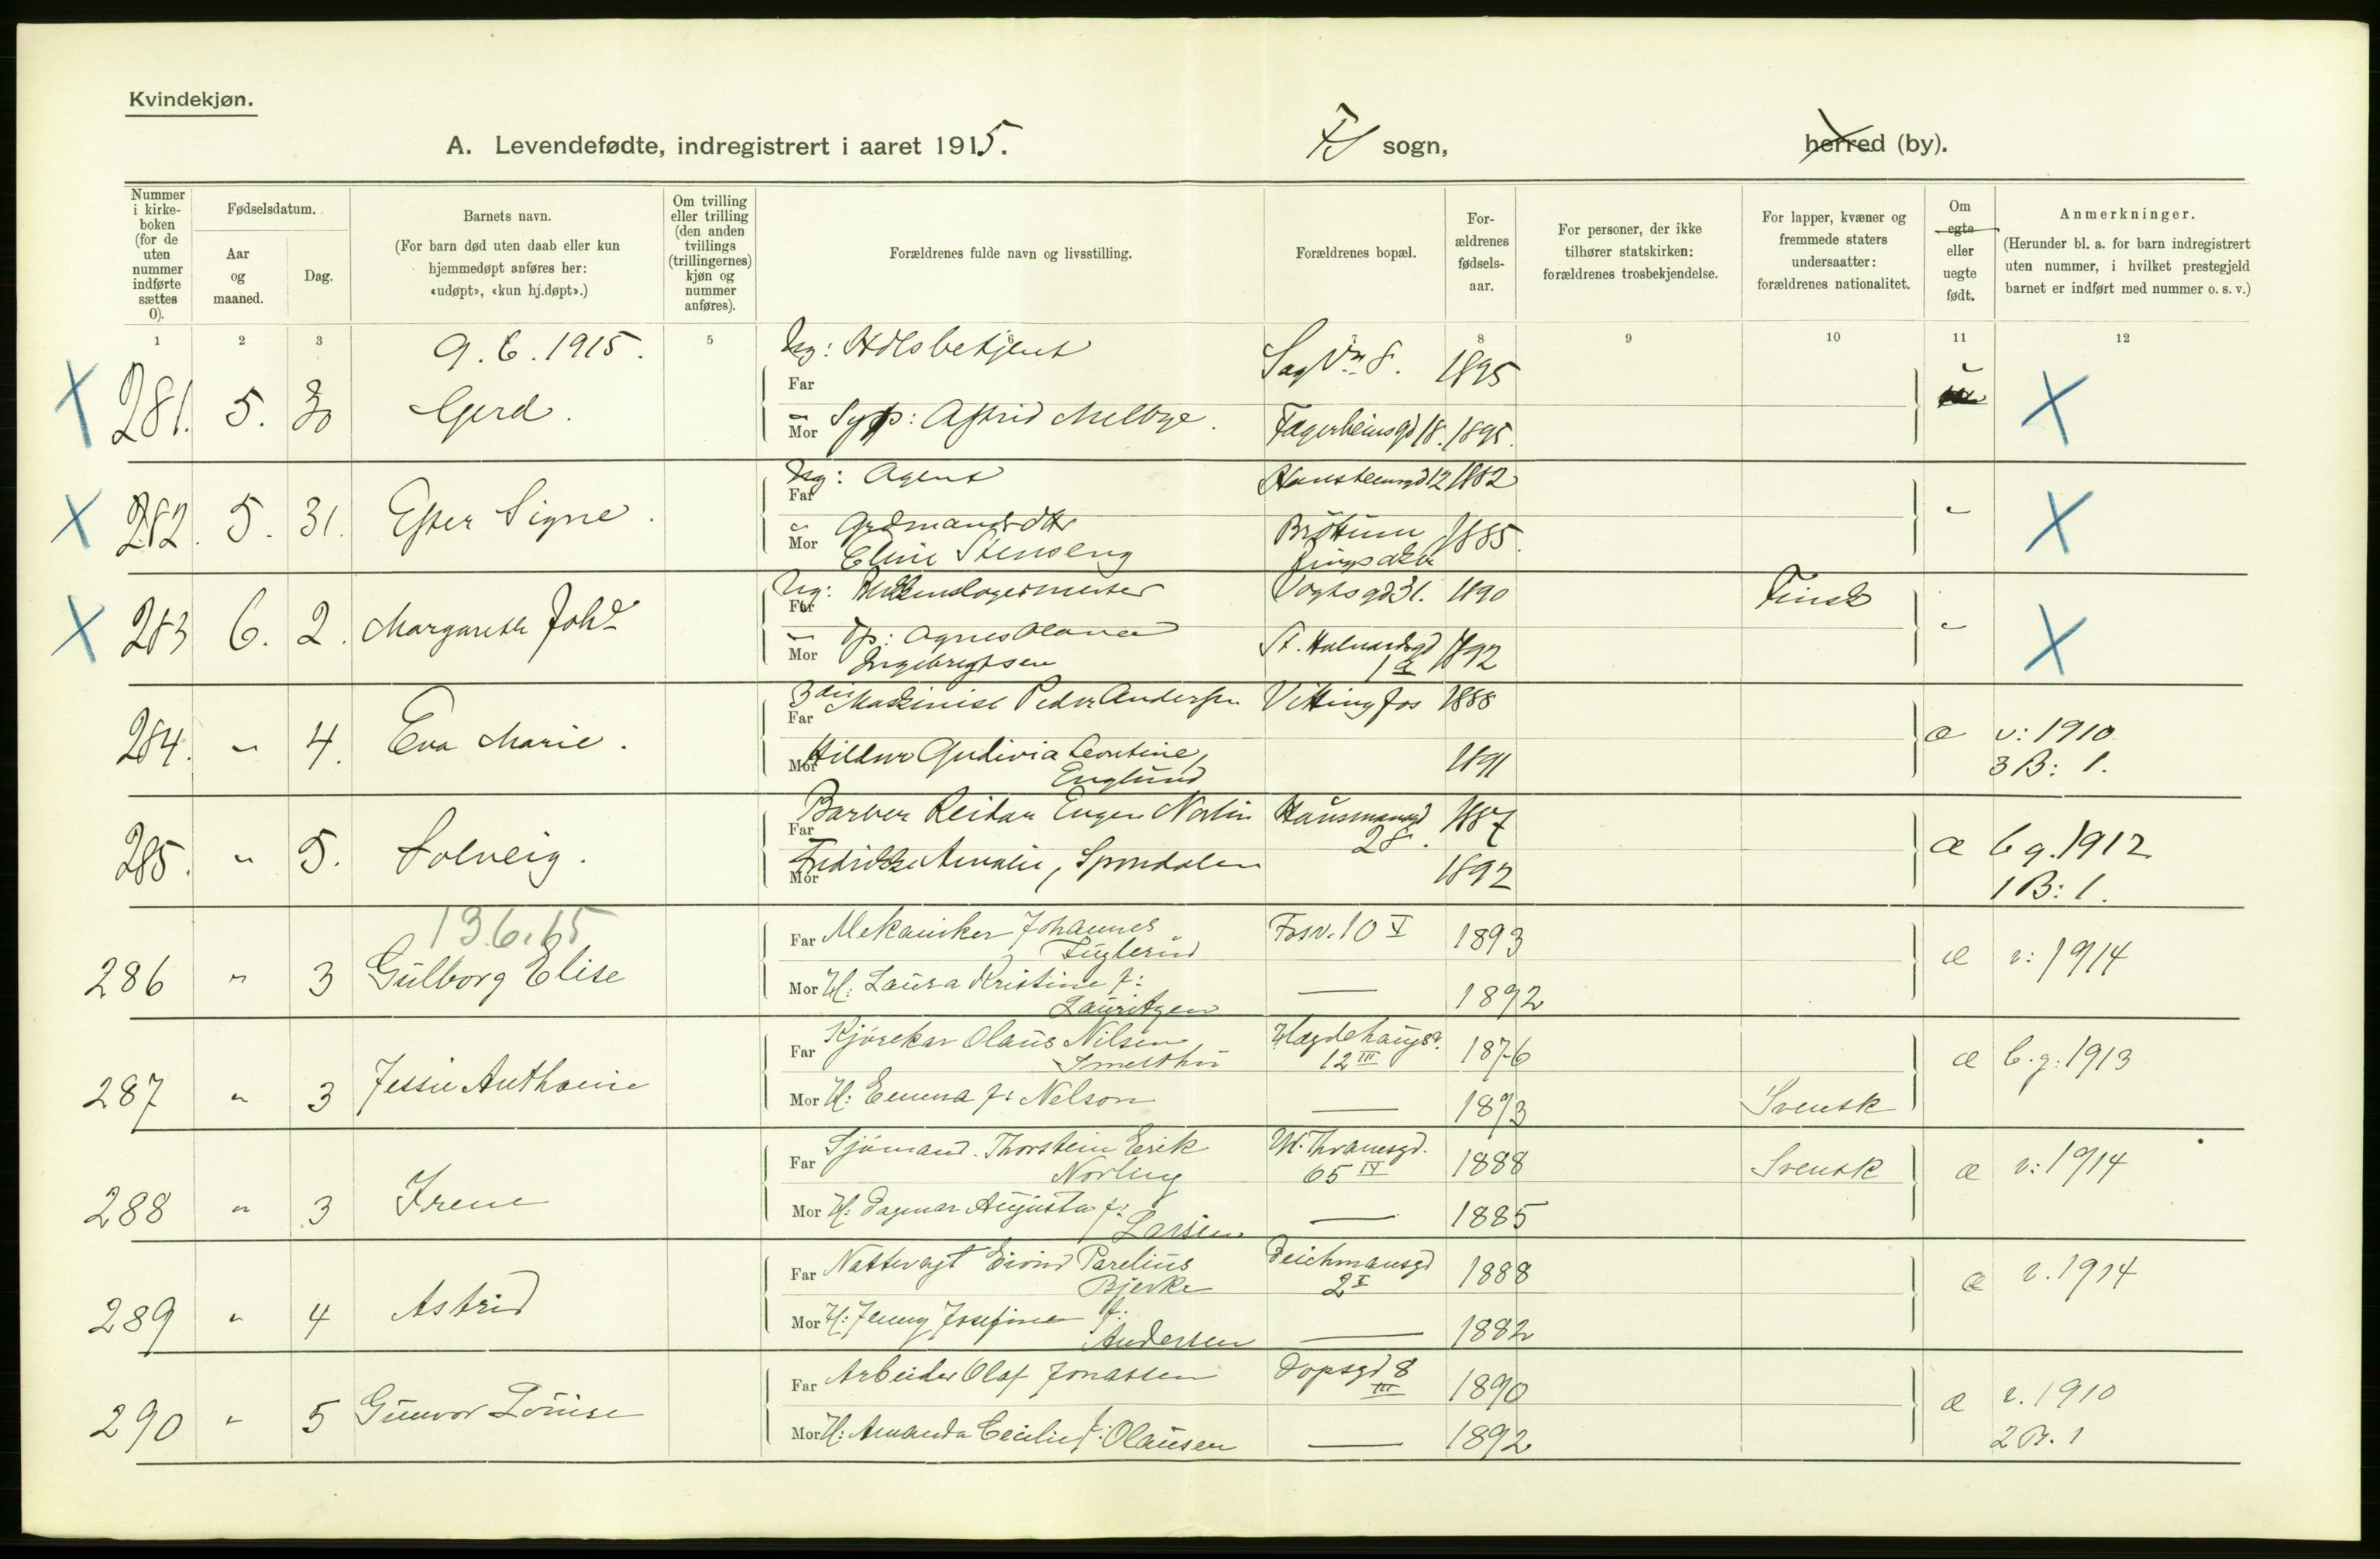 Kvindekjøn.
A. Levendefødte, indregistrert i aaret 1915.
FS sogn,
herred (by).
Nummer i kirke-boken (for de uten nummer indførte sættes 0).
Fødselsdatum.
Aar og maaned.
Dag.
Barnets navn.
(For barn død uten daab eller kun hjemmedøpt anføres her: «udøpt», «kun hj.døpt».)
Om tvilling eller trilling (den anden tvillings (trillingernes) kjøn og nummer anføres).
Forældrenes fulde navn og livsstilling.
Forældrenes bopæl.
For-ældrenes fødsels-aar.
For personer, der ikke tilhører statskirken: forældrenes trosbekjendelse.
For lapper, kvæner og fremmede staters undersaatter: forældrenes nationalitet.
Om egte eller uegte født.
Anmerkninger.
(Herunder bl. a. for barn indregistrert uten nummer, i hvilket prestegjeld barnet er indført med nummer o. s. v.)
1 2 3 5 6 8 9 10 11 12
9.6.1915.
X 281. 5. 30 Gerd. Far Ug: Sag Vn 8. 1895 u X
Mor Syp: Astrid Melbye. Fagerheimsgd 18. 1895.
X 282. 5. 31. Ester Signe. Far Ug: Agent Hansteensgd 12 1882 " X
Mor Grdmandsdtr Eline Stenseng Brøttum Ringsaker 1885.
X 283 6. 2. Margarethe Joh. Far Ug: Vogtsgd 31. 1890 Finsk " X
Mor Tjp: Agnes Olava Ingebregtsen St. Halvardsgd 1 1892
284. " 4. Eva Marie. Far 3die Maskinist Peder Andersen Vittingfos 1888 æ v: 1910
Mor Hildur Gudivia Leontine, Englund 1891 3 B: 1.
285. " 5. Solveig. Far Barber Reidar Eugen Norlin Hausmannsgd 28. 1887 æ b g. 1912
Mor Fredrikke Amalie, Spondalen 1892 1 B: 1.
13.6.15
286 " 3 Gulborg Elise Far Mekaniker Johannes Fuglerud Fosv. 10 V 1893 æ v: 1914
Mor H: Laura Kristine f: Lauritzen — 1892
287 " 3 Jessie Anthonie Far Kjørekar Olaus Nilsen Smesthu Hægdehaugsv. 12 III 1876 æ b.g: 1913
Mor H: Emma f: Nelson — 1893 Svensk
288 " 3 Irene Far Sjømand. Thorstein Erik Norling M. Thranesgd. 65 IV 1888 Svensk æ v: 1914
Mor H: Dagmar Augusta f: Larsen — 1885
289 " 4 Astrid Far Nattevagt Eivind Parelius Bjerke Deichmansgd 2 I 1888 æ v. 1914
Mor H: Jenny Josefine f: Andersen — 1882
290 " 5 Gunvor Louise Far Arbeider Olaf Jonassen Dopsgd 8 III 1890 æ v. 1910
Mor H: Amanda Cecilie f: Olausen — 1892 2 B. 1